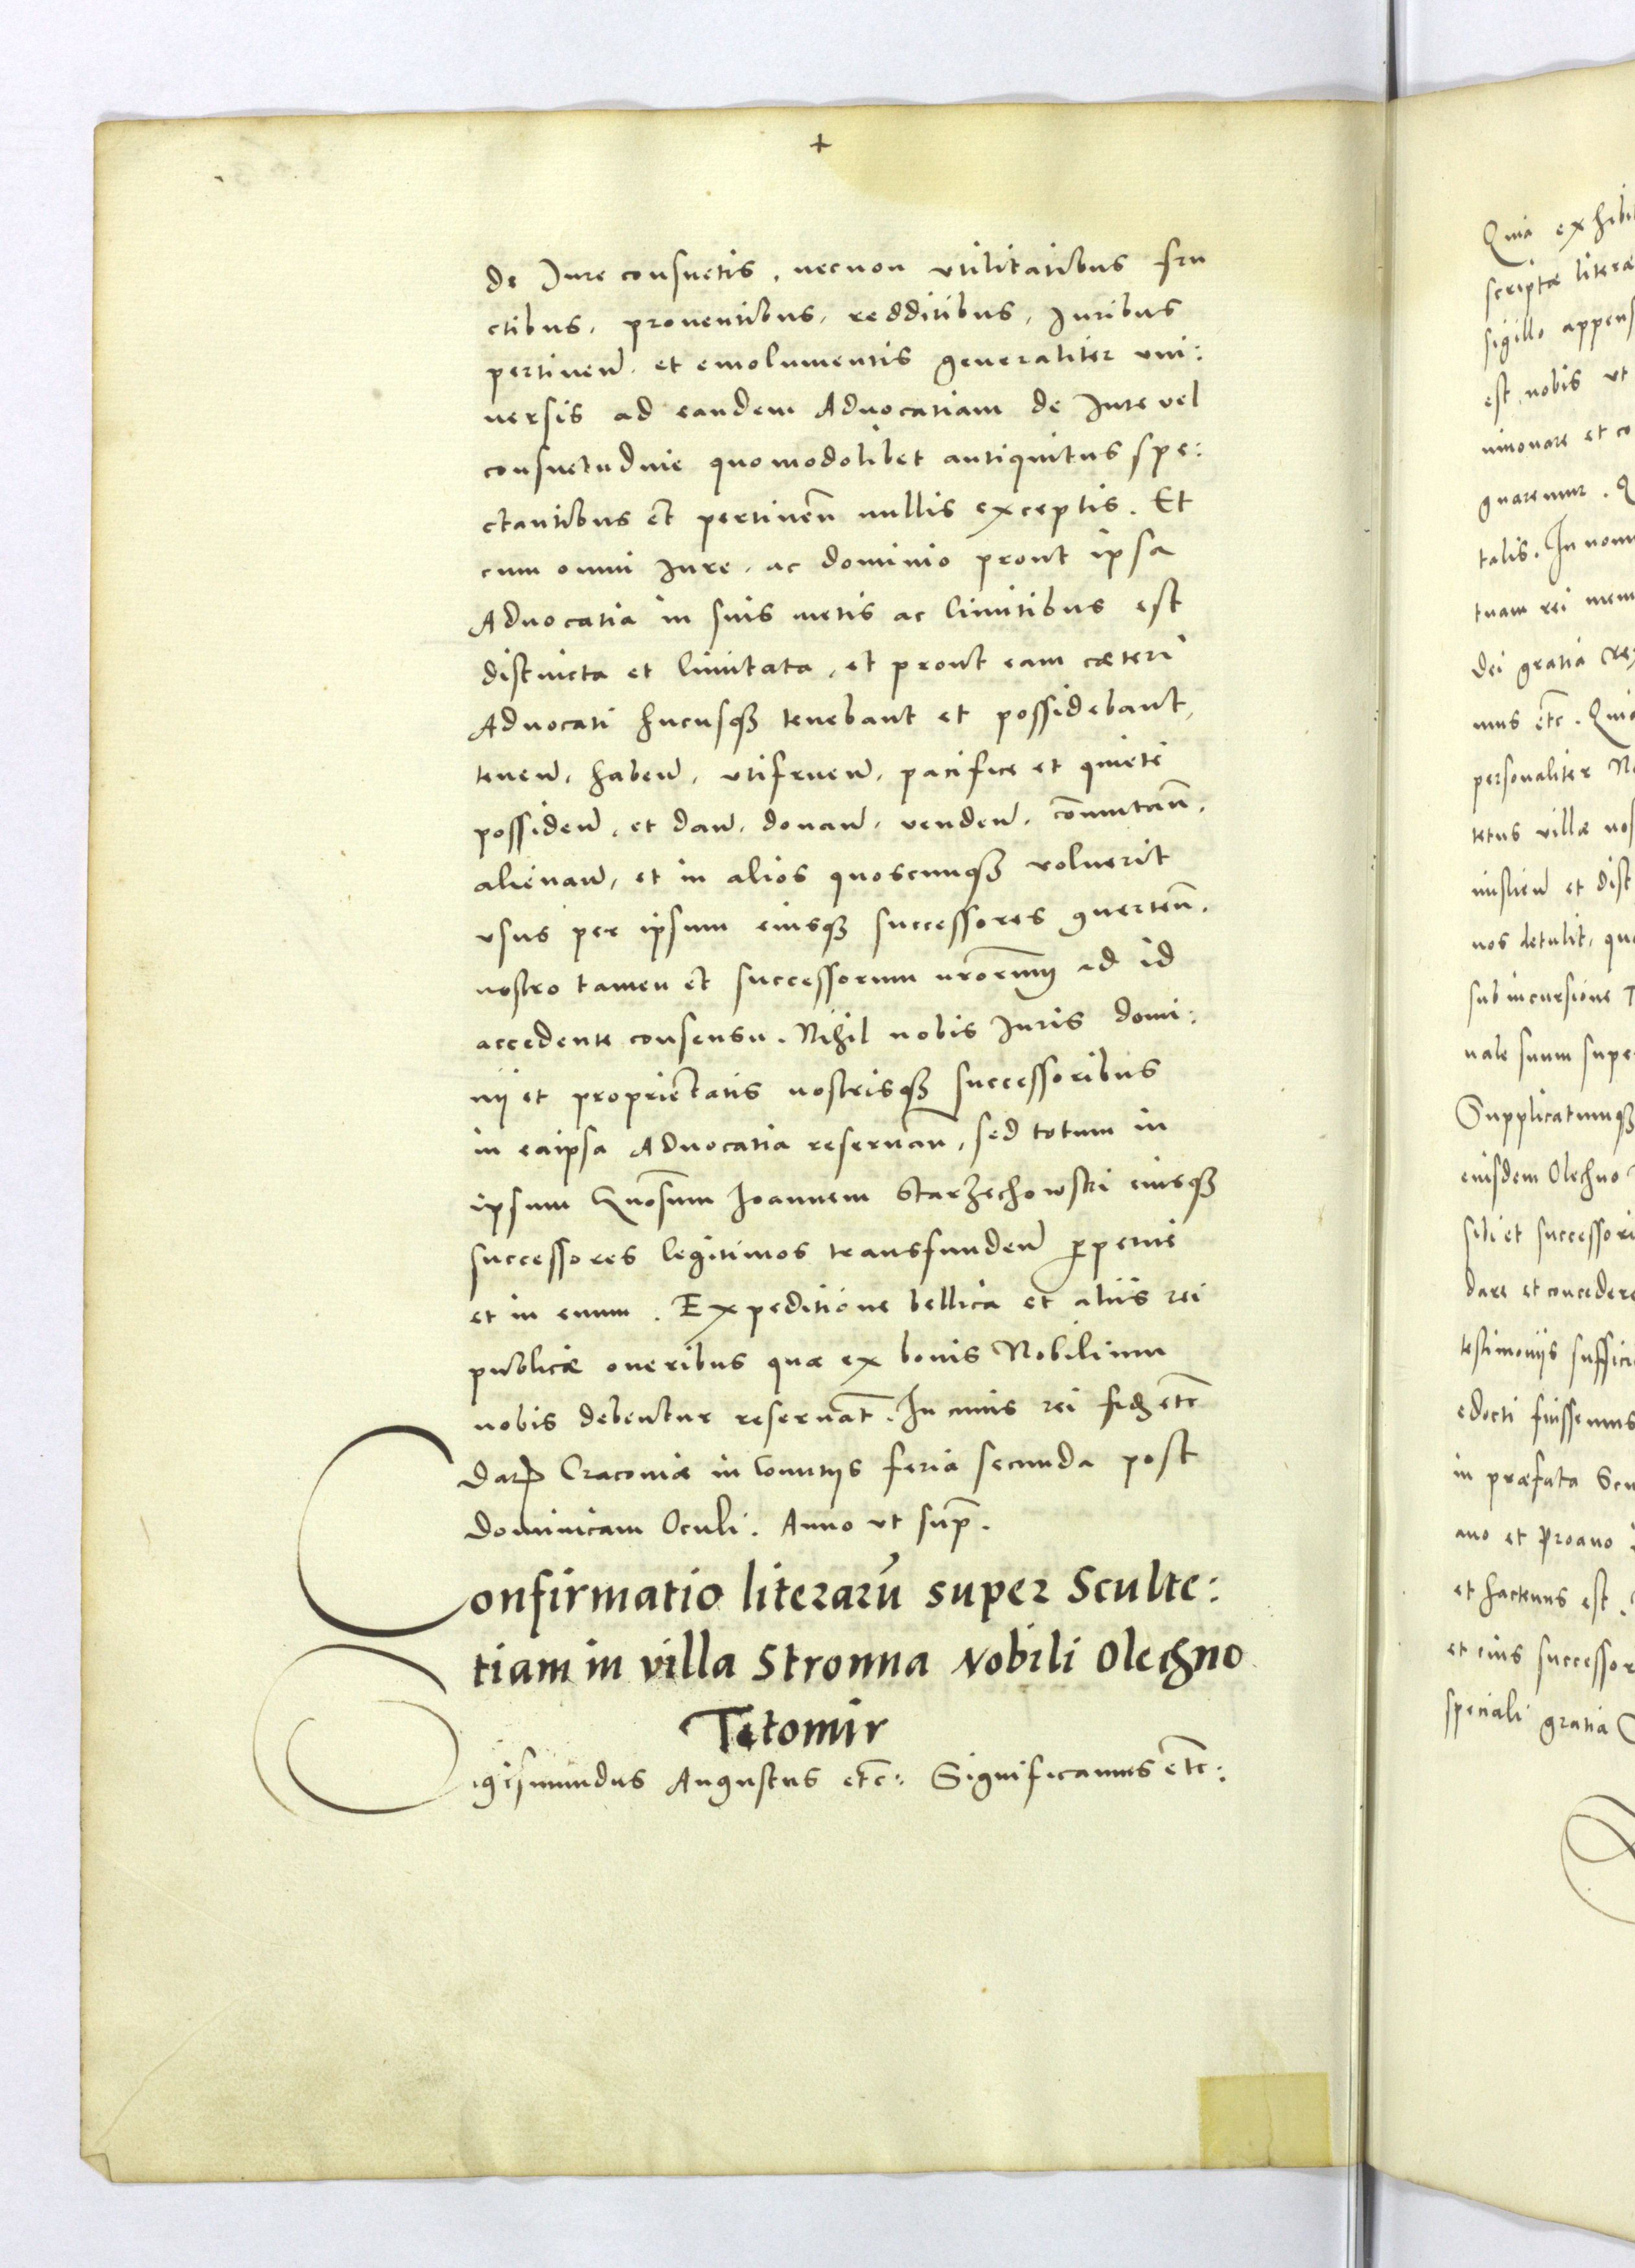 +
de Jure consuetis, necnon vtilitatibus fru
ctibus, prouentibus, redditibus, Juribus
pertinen̄. et emolumentis generaliter vni:
uersis ad eandem Aduocatiam de Jure vel
consuetudine quomodolibet antiquitus spe:
ctantibus et pertinen̄ nullis exceptis. Et
cum omni Jure, ac dominio prout ipsa
Aduocatia in suis metis ac limitibus est
distincta et limitata, et prout eam cæteri
Aduocati hucusq3 tenebant et possidebant,
tenen̄. haben̄. vtifruen̄. pacifice et quiete
possiden̄. et dan̄. donan̄. venden̄. com̄utan̄.
alienan̄, et in alios quoscunq3 voluerit
vsus per ipsum eiusq3 successores ꝯuerten̄.
nostro tamen et successorum nr̄orum ad id
accedente consensu. Nihil nobis Juris domi:
nij et proprietatis nostrisq3 successoribus
in eaipsa Aduocatia reseruan̄, sed totum in
ipsum Gn̄osum Joannem Starzechowski eiusq3
successores legitimos transfunden̄ ꝑpetue
et in euum. Expeditione bellica et aliis rei
publicæ oneribus quæ ex bonis Nobilium
nobis debentur reseruat̄. In cuius rei fid3 etc̄
Dat̄ Cracouiæ in Conuen̄tijs feria secunda post
dominicam Oculi. Anno vt sup̄.
Confirmatio literarū super Sculte:
tiam in villa Stronna Nobili Olechno
Tetomir
Sigismundus Augustus etc̄: Significamus etc̄:
Quia exhibi
scriptæ literæ
sigillo appens
est nobis vt
nnouare et co
gnaremur. Q
talis. In nom
tuam rei mem
dei gratia Rex
mus etc̄. Quia
personaliter No
tetus villæ nos
mistien̄ et dist
nos detulit, qu
sub incursione T
nale suum supe
Supplicatumq3
eiusdem Olechno
sibi et successori
dare et concedere
testimonijs suffici
edocti fuissemus
in præfata Scu
auo et Proauo
et hactenus est.
et eius successor
speciali gratia